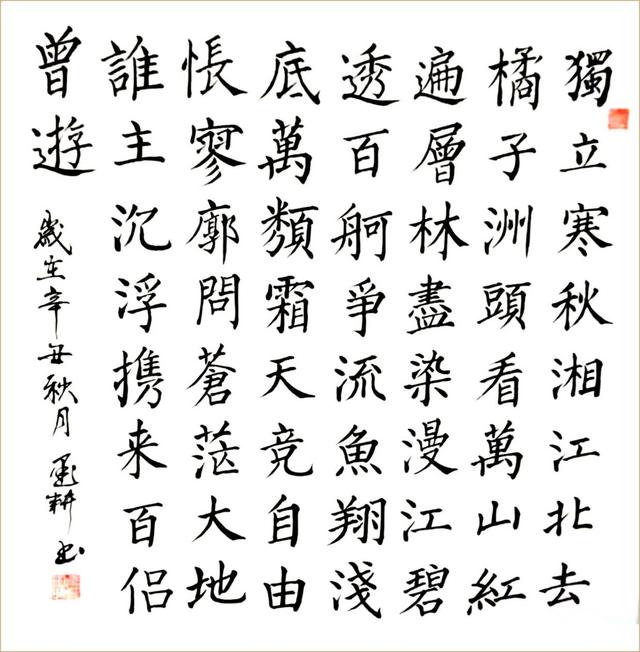 獨立寒秋湘江北去
橘子洲頭看萬山紅
遍層林盡染漫江碧
透百舸爭流魚翔淺
底萬類霜天竞自由
悵寥廓問蒼茫大地
誰主沉浮携来百侣
曾遊
歲在辛丑秋月墨耕书